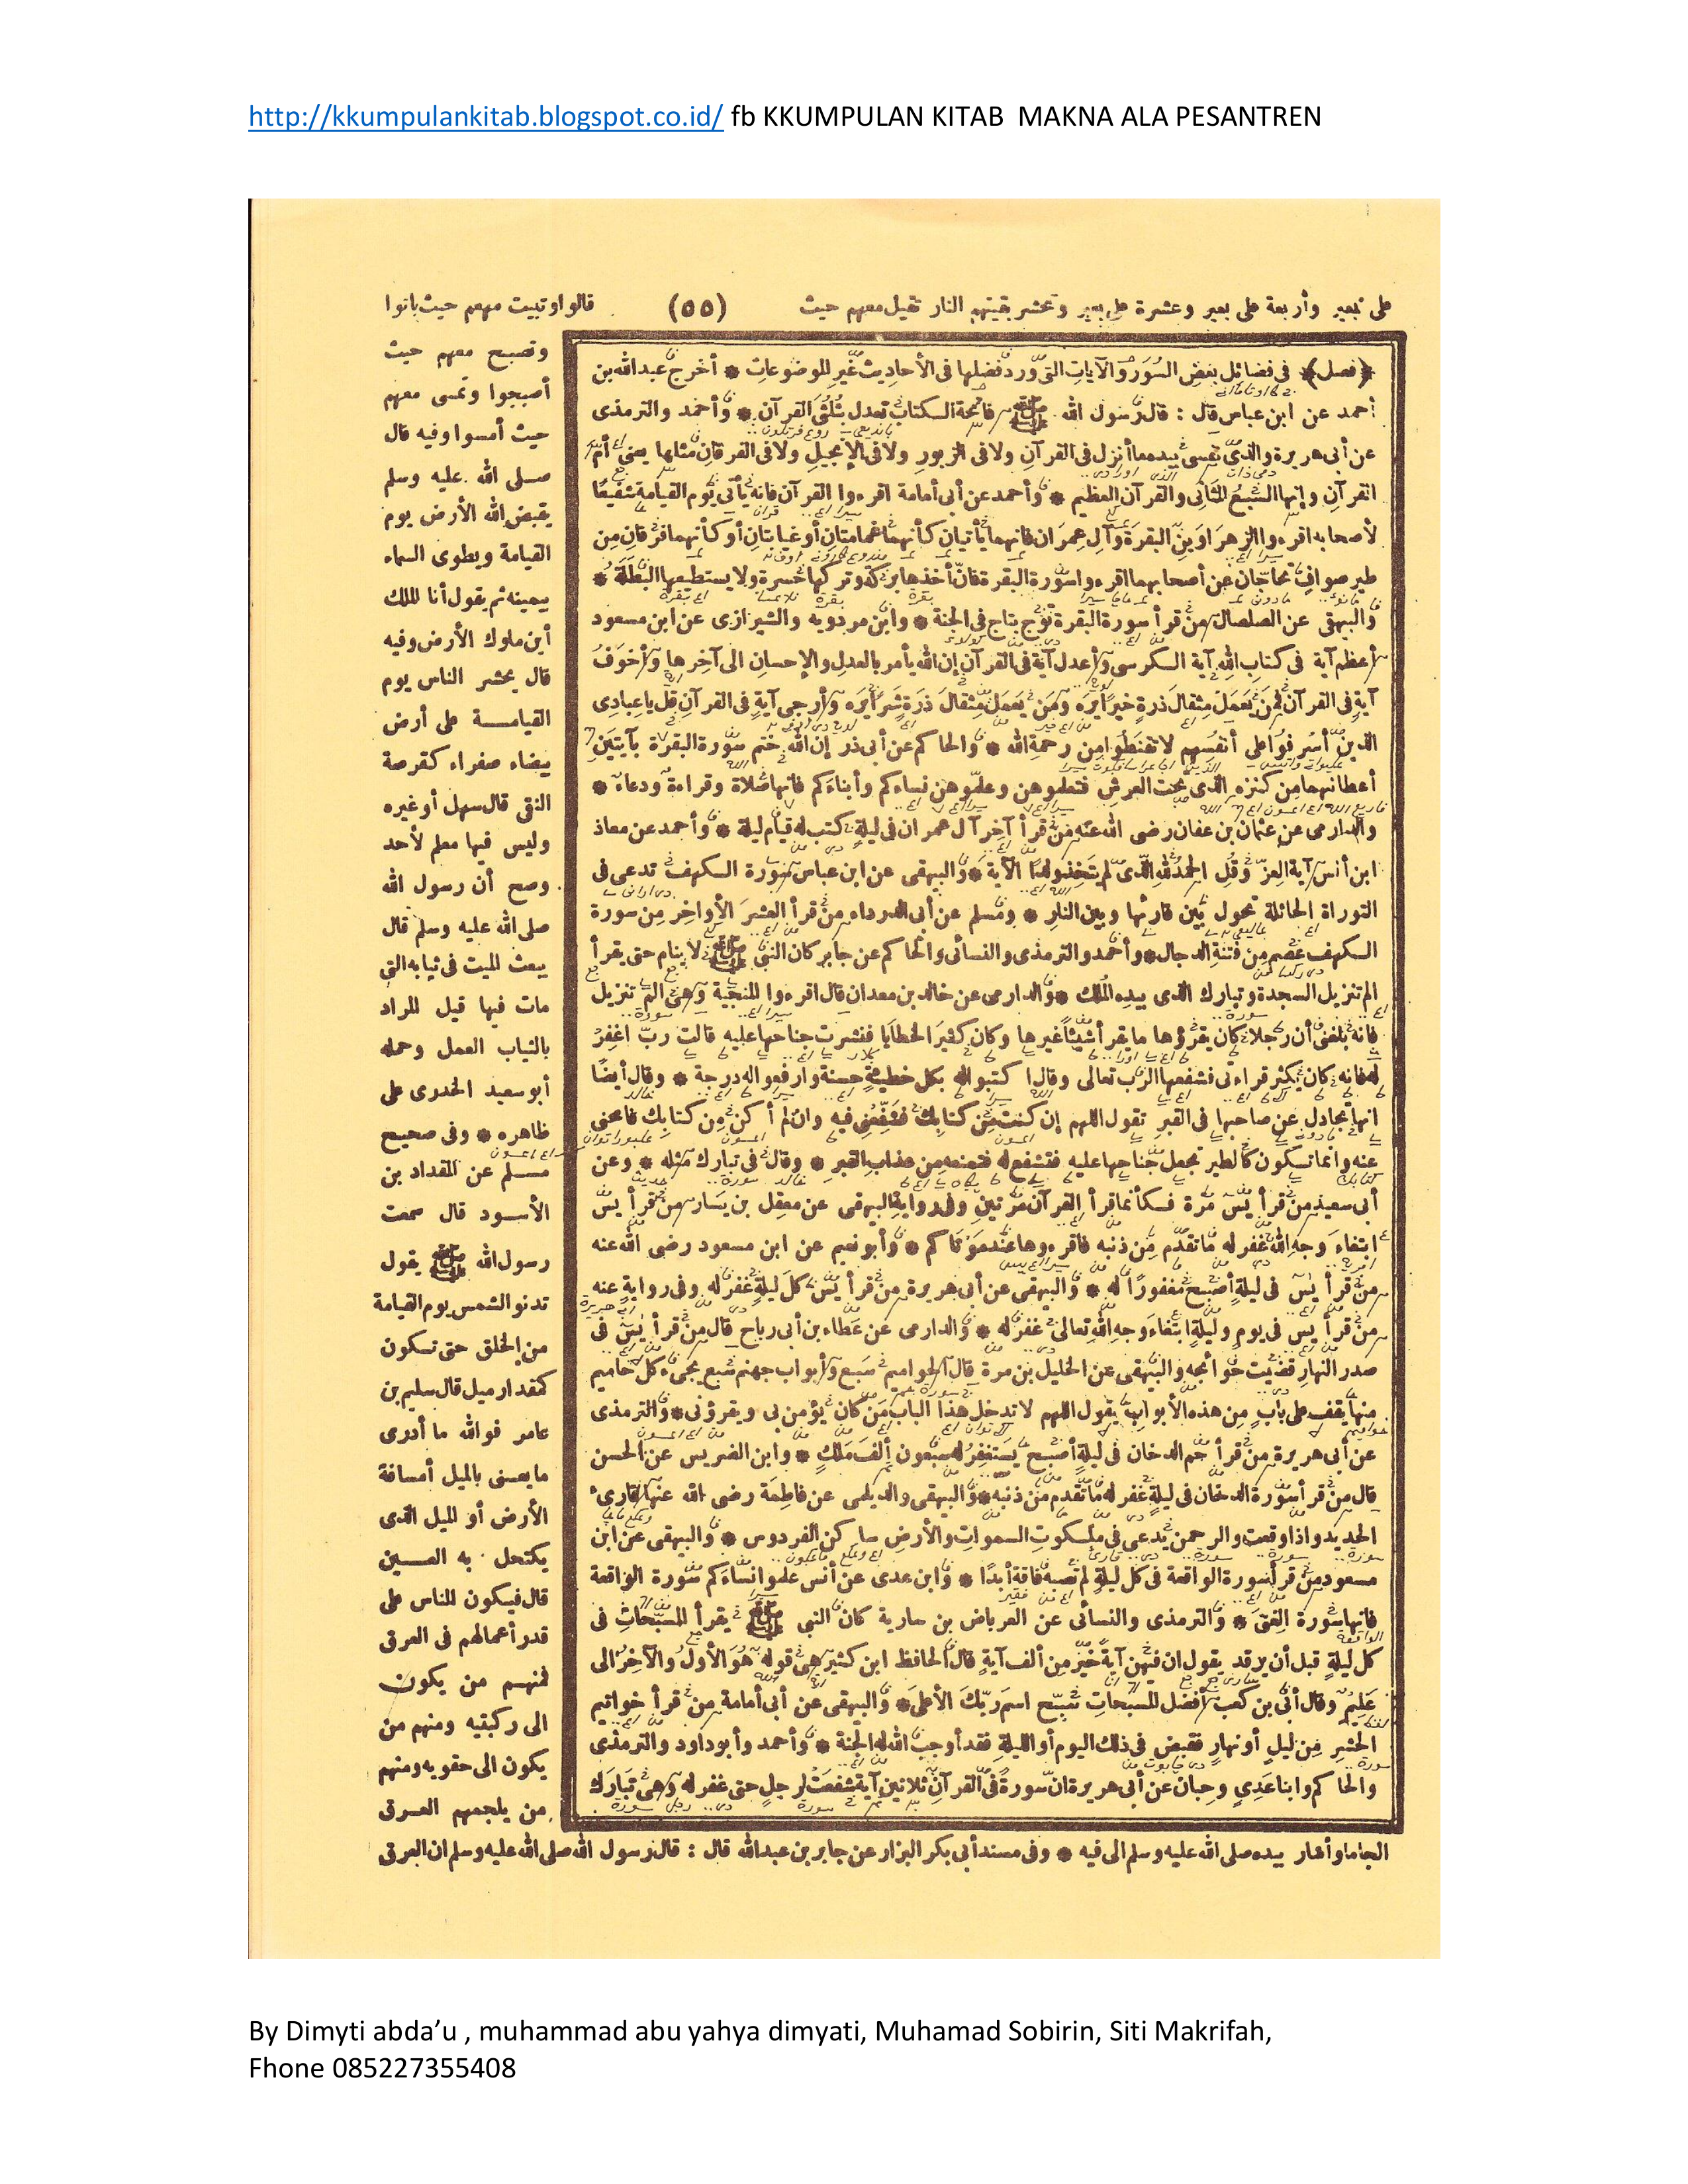 http://kkumpulankitab.blogspot.co.id/ fb KKUMPULAN KITAB MAKNA ALA PESANTREN
على بعير وأربعة على بعير وعشرة على بعير وتحشر بقيتهم النار تقيل معهم حيث (٥٥) قالوا وتبيت معهم حيث باتوا
﴿فصل﴾ فى فضائل بعض السُوَر والآيات التى ورد فضلها فى الأحاديث غير الموضوعات * أخرج عبدالله بن
أحمد عن ابن عباس قال : قال رسول الله ﷺ فاتحة الكتاب تعدل بثلثى القرآن * وأحمد والترمذى
عن أبى هريرة والذى نفسى بيده ما أنزل فى القرآن ولا فى الزبور ولا فى الإنجيل ولا فى الفرقان مثلها يعنى أم
القرآن وإنها السبع المثانى والقرآن العظيم * وأحمد عن أبى أمامة اقرءوا القرآن فانه يأتى يوم القيامة شفيعا
لأصحابه اقرءوا الزهراوين البقرة وآل عمران فانهما يأتيان كأنهما غمامتان أو غيايتان أو كأنهما فرقان من
طير صواف تحاجان عن أصحابهما اقرءوا سورة البقرة فان أخذها بركة وتركها حسرة ولا يستطيعها البطلة *
والبيهقى عن الصلصال من قرأ سورة البقرة توج بتاج فى الجنة * وابن مردويه والشيرازى عن ابن مسعود
أعظم آية فى كتاب الله آية الكرسى وأعدل آية فى القرآن إن الله يأمر بالعدل والإحسان الى آخرها وأخوف
آية فى القرآن فمن يعمل مثقال ذرة خيرا يره ومن يعمل مثقال ذرة شرا يره وأرجى آية فى القرآن قل يا عبادى
الذين أسرفوا على أنفسهم لا تقنطوا من رحمة الله * والحاكم عن أبى ذر إن الله ختم سورة البقرة بآيتين
أعطانيهما من كنزه الذى تحت العرش فتعلموهن وعلموهن نساءكم وأبناءكم فانها صلاة وقراءة ودعاء *
والدارمى عن عثمان بن عفان رضى الله عنه من قرأ آخر آل عمران فى ليلة كتب له قيام ليلة * وأحمد عن معاذ
ابن أنس آية العز وقل الحمد لله الذى لم يتخذ ولدا الآية * والبيهقى عن ابن عباس سورة الكهف تدعى فى
التوراة الحائلة تحول بين قارئها وبين النار * ومسلم عن أبى الدرداء من قرأ العشر الأواخر من سورة
الكهف عصم من فتنة الدجال * وأحمد والترمذى والنسائى والحاكم عن جابر كان النبى ﷺ لا ينام حتى يقرأ
الم تنزيل السجدة وتبارك الذى بيده الملك * والدارمى عن خالد بن معدان قال اقرءوا المنجية وهى الم تنزيل
فانه بلغنى أن رجلا كان يقرؤها ما يقرأ شيئا غيرها وكان كثير الخطايا فنشرت جناحها عليه قالت رب اغفر
له فانه كان يكثر قراءتى فشفعها الرب تعالى وقال اكتبوا له بكل خطيئة حسنة وارفعوا له درجة * وقال أيضا
انها تجادل عن صاحبها فى القبر تقول اللهم إن كنت من كتابك فشفعنى فيه وان لم أكن من كتابك فامحنى
عنه وانها تكون كالطير تجعل جناحها عليه فتشفع له فتمنعه من عذاب القبر * وقال فى تبارك مثله * وعن
أبى سعيد من قرأ يس مرة فكأنما قرأ القرآن مرتين وفى رواية البيهقى عن معقل بن يسار من قرأ يس
ابتغاء وجه الله غفر له ما تقدم من ذنبه فاقرءوها عند موتاكم * وأبو نعيم عن ابن مسعود رضى الله عنه
من قرأ يس فى ليلة أصبح مغفورا له * والبيهقى عن أبى هريرة من قرأ يس كل ليلة غفر له وفى رواية عنه
من قرأ يس فى يوم وليلة ابتغاء وجه الله تعالى غفر له * والدارمى عن عطاء بن أبى رباح قال من قرأ يس فى
صدر النهار قضيت حوائجه والبيهقى عن الخليل بن مرة قال الحواميم سبع وأبواب جهنم سبع يجىء كل حاميم
منها يقف على باب من هذه الأبواب يقول اللهم لا تدخل هذا الباب من كان يؤمن بى ويقرؤنى * والترمذى
عن أبى هريرة من قرأ حم الدخان فى ليلة أصبح يستغفر له سبعون ألف ملك * وابن الضريس عن الحسن
قال من قرأ سورة الدخان فى ليلة غفر له ما تقدم من ذنبه * والبيهقى والديلمى عن فاطمة رضى الله عنها قارىء
الحديد واذا وقعت والرحمن يدعى فى ملكوت السموات والأرض ساكن الفردوس * والبيهقى عن ابن
مسعود من قرأ سورة الواقعة فى كل ليلة لم تصبه فاقة أبدا * وابن عدى عن أنس علموا نساءكم سورة الواقعة
فانها سورة الغنى * والترمذى والنسائى عن العرباض بن سارية كان النبى ﷺ يقرأ المسبحات فى
كل ليلة قبل أن يرقد يقول ان فيهن آية خير من ألف آية قال الحافظ ابن كثير هى قوله هو الأول والآخر الى
عليم وقال أبى بن كعب أفضل المسبحات سبح اسم ربك الأعلى * والبيهقى عن أبى أمامة من قرأ خواتيم
الحشر من ليل أو نهار فقبض فى ذلك اليوم أو الليلة فقد أوجب الله له الجنة * وأحمد وأبو داود والترمذى
والحاكم وابنا عدى وحبان عن أبى هريرة ان سورة فى القرآن ثلاثين آية شفعت لرجل حتى غفر له وهى تبارك
وتصبح معهم حيث
أصبحوا وتمسى معهم
حيث أمسوا وفيه قال
صلى الله عليه وسلم
يقبض الله الأرض يوم
القيامة ويطوى السماء
بيمينه ثم يقول أنا الملك
أين ملوك الأرض وفيه
قال يحشر الناس يوم
القيامة على أرض
بيضاء صفراء كقرصة
النقى قال سهل أو غيره
وليس فيها معلم لأحد
وصح أن رسول الله
صلى الله عليه وسلم قال
يبعث الميت فى ثيابه التى
مات فيها قيل المراد
بالثياب العمل وحمله
أبو سعيد الخدرى على
ظاهره * وفى صحيح
مسلم عن المقداد بن
الأسود قال سمعت
رسول الله ﷺ يقول
تدنو الشمس يوم القيامة
من الخلق حتى تكون
كمقدار ميل قال سليم بن
عامر فوالله ما أدرى
ما يعنى بالميل أمسافة
الأرض أو الميل الذى
يكتحل به العين
قال فيكون الناس على
قدر أعمالهم فى العرق
فمنهم من يكون
الى ركبتيه ومنهم من
يكون الى حقويه ومنهم
من يلجمهم العرق
الجاما وأشار بيده صلى الله عليه وسلم الى فيه * وفى مسند أبى بكر البزار عن جابر بن عبدالله قال : قال رسول الله صلى الله عليه وسلم ان العرق
By Dimyti abda’u , muhammad abu yahya dimyati, Muhamad Sobirin, Siti Makrifah,
Fhone 085227355408